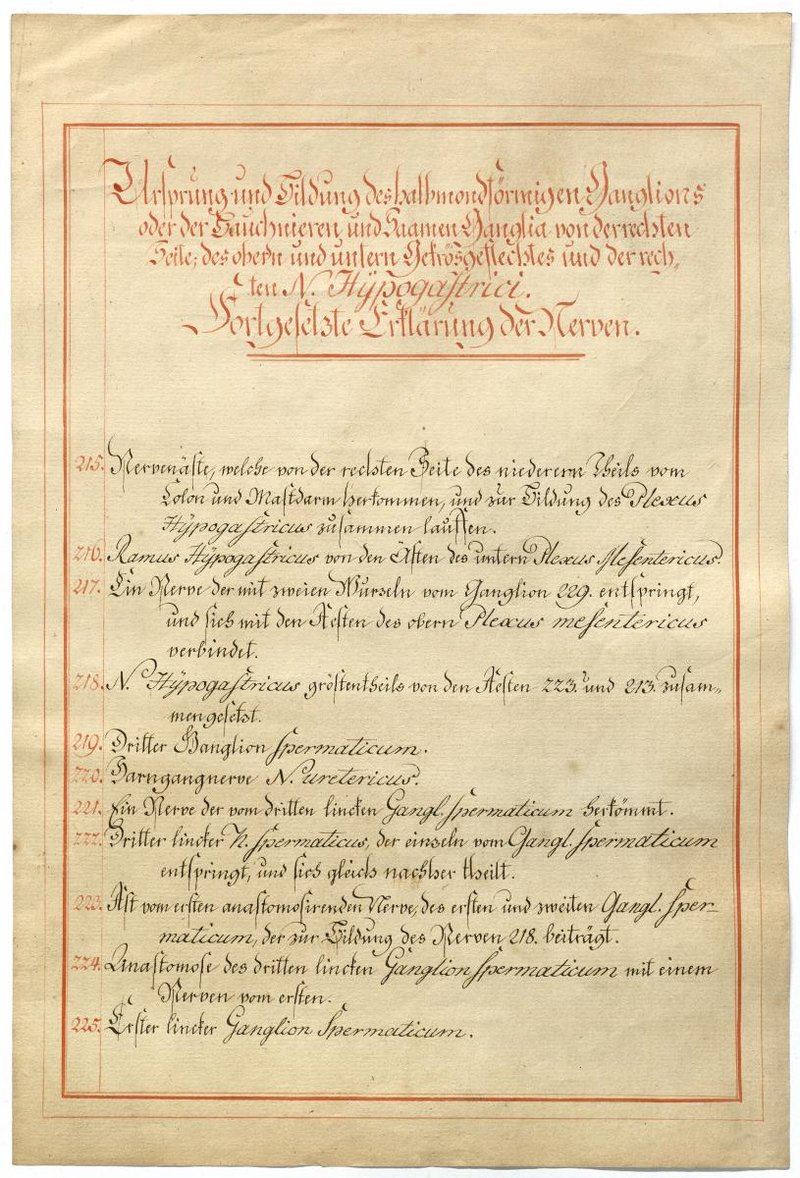 Ursprung und Bildung des halbmondförmigen Ganglions
oder der Bauchnieren und Saamen Ganglia von der rechten
Seite; des obern und untern Gekrösgeflechtes und der rech-
ten N. Hÿpogastrici.
Fortgesetzte Erklärung der Nerven.
215. Nervenäste, welche von der rechten Seite des niederern Theils vom
Colon und Mastdarm herkommen, und zur Bildung des Plexus
Hÿpogastricus zusammen lauffen.
216. Ramus Hÿpogastricus von den Ästen des untern Plexus Mesentericus.
217. Ein Nerve der mit zweien Wurseln vom Ganglion 229. entspringt,
und sich mit den Aesten des obern Plexus mesentericus
verbindet.
218. N. Hÿpogastricus gröstentheils von den Aesten 223. und 213. zusam-
mengesetzt.
219. Dritter Ganglion spermaticum.
220. Harngangnerve N. uretericus.
221. Ein Nerve der vom dritten lincken Gangl. spermaticum herkömmt.
222. Dritter lincker N. spermaticus, der einseln vom Gangl. spermaticum
entspringt, und sich gleich nachher theilt.
223. Ast vom ersten anastomosirenden Nerve, des ersten und zweiten Gangl. Sper-
maticum, der zur Bildung des Nerven 218. beiträgt.
224. Anastomose des dritten lincken Ganglion spermaticum mit einem
Nerven vom ersten.
225. Erster lincker Ganglion Spermaticum.